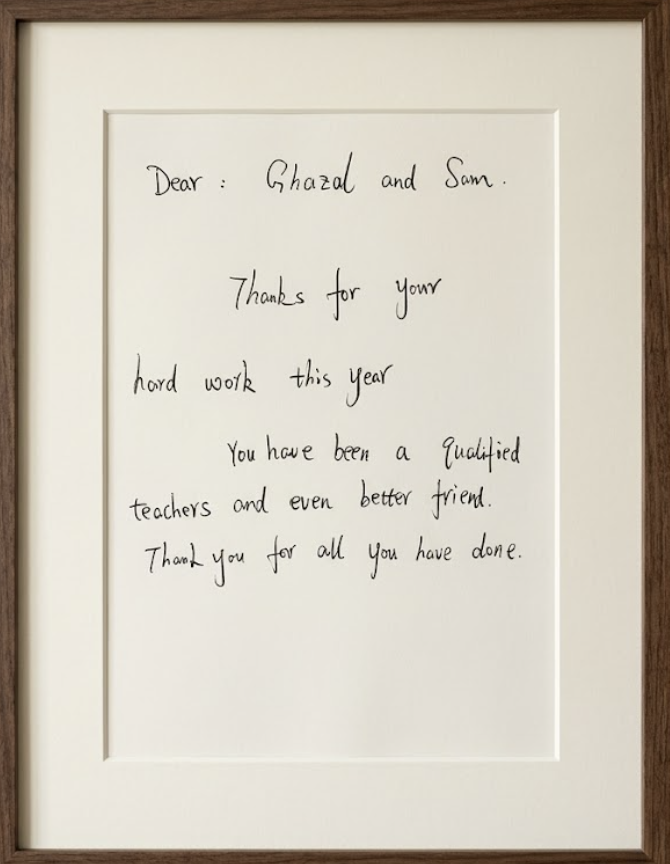 Dear : Ghazal and Sam.
Thanks for your
hard work this year
You have been a qualified
teachers and even better friend.
Thank you for all you have done.